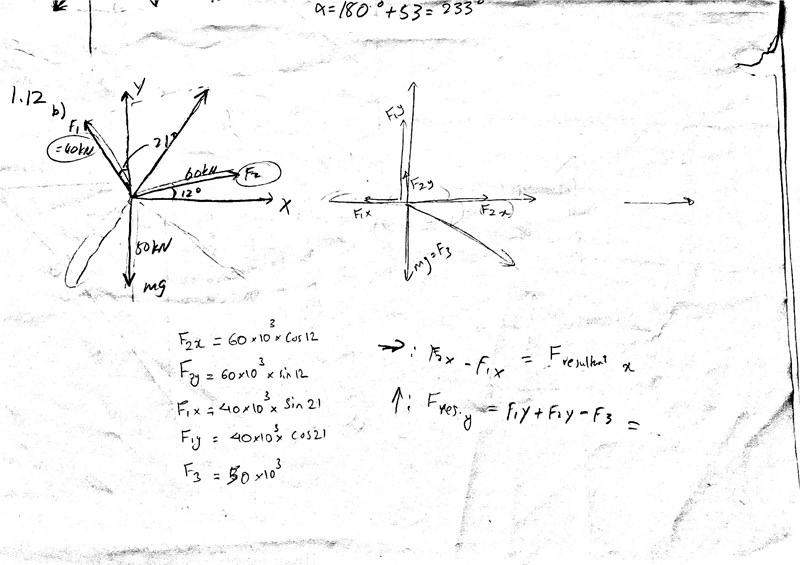 α = 180° + 53 = 233°
1.12 b)
Y
F₁
= 40kN
21°
60kN
F₂
12°
X
50kN
mg
F₁y
F₂y
F₁x
F₂x
mg = F₃
F₂x = 60×10³ × cos12
F₂y = 60×10³ × sin12
F₁x = 40×10³ × sin21
F₁y = 40×10³ × cos21
F₃ = 50×10³
→: F₂x - F₁x = Fresultant x
↑: Fres.y = F₁y + F₂y - F₃ =